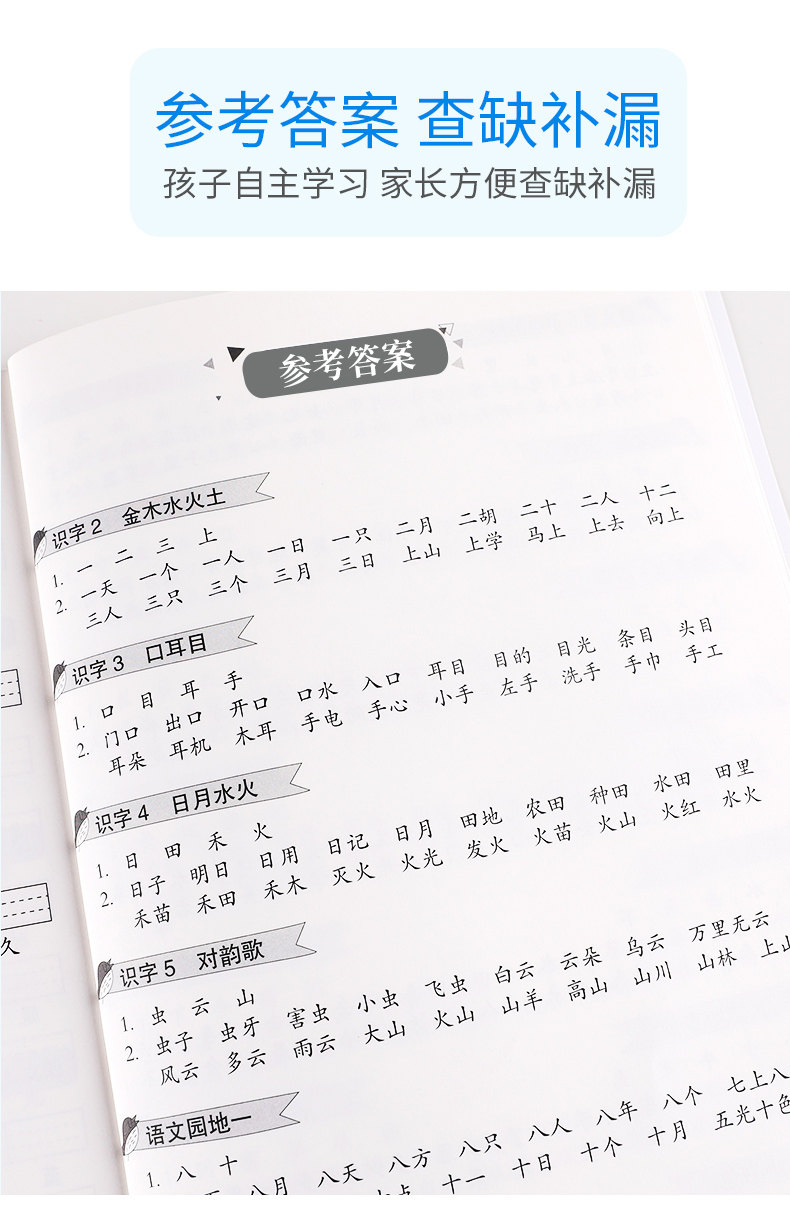 参考答案 查缺补漏
孩子自主学习 家长方便查缺补漏
参考答案
识字2 金木水火土
1. 一 二 三 上
2. 一天 一个 一人 一日 一只 二月 二胡 二十 二人 十二
三人 三只 三个 三月 三日 上山 上学 马上 上去 向上
识字3 口耳目
1. 口 目 耳 手
2. 门口 出口 开口 口水 入口 耳目 目的 目光 条目 头目
耳朵 耳机 木耳 手电 手心 小手 左手 洗手 手巾 手工
识字4 日月水火
1. 日 田 禾 火
2. 日子 明日 日用 日记 日月 田地 农田 种田 水田 田里
禾苗 禾田 禾木 灭火 火光 发火 火苗 火山 火红 水火
识字5 对韵歌
1. 虫 云 山
2. 虫子 虫牙 害虫 小虫 飞虫 白云 云朵 乌云 万里无云
风云 多云 雨云 大山 火山 山羊 高山 山川 山林 上山
语文园地一
1. 八 十
八月 八天 八方 八只 八人 八年 八个 七上八
十一 十日 十个 十月 五光十色
久